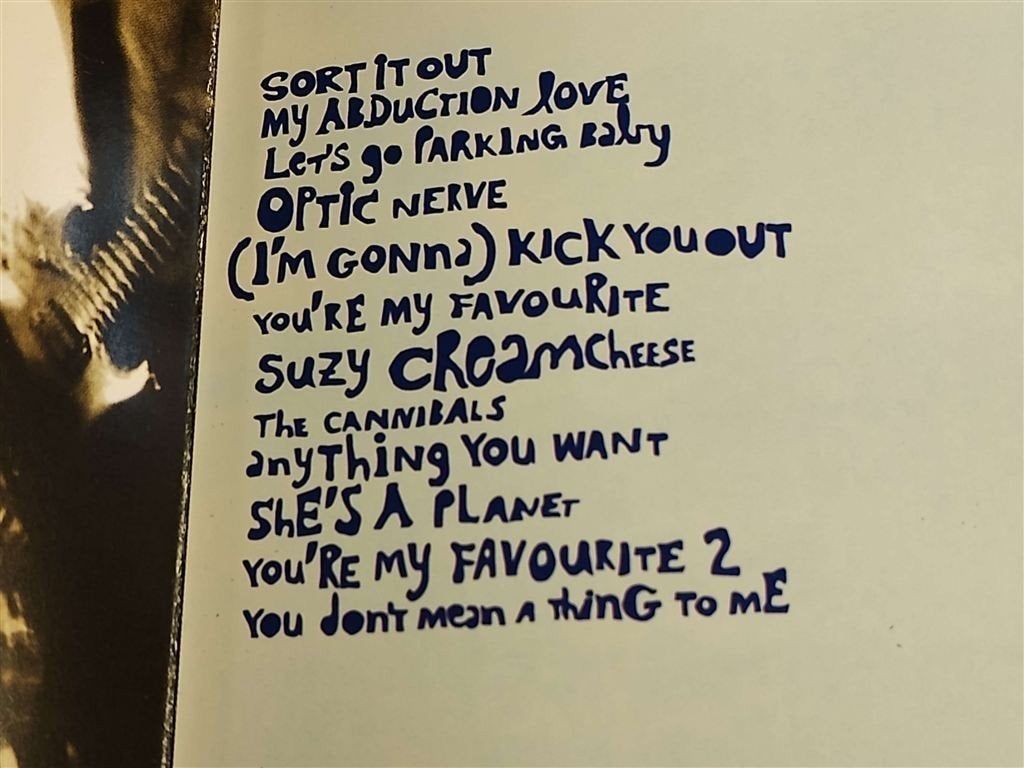 SORT IT OUT
MY ABDUCTION LOVE
LET'S gO PARKING BABY
OPTIC NERVE
(I'M GONNA) KICK YOU OUT
YOU'RE MY FAVOURITE
SUZY CREAMCHEESE
THE CANNIBALS
ANYTHING YOU WANT
SHE'S A PLANET
YOU'RE MY FAVOURITE 2
YOU don't MEAN A THING TO ME